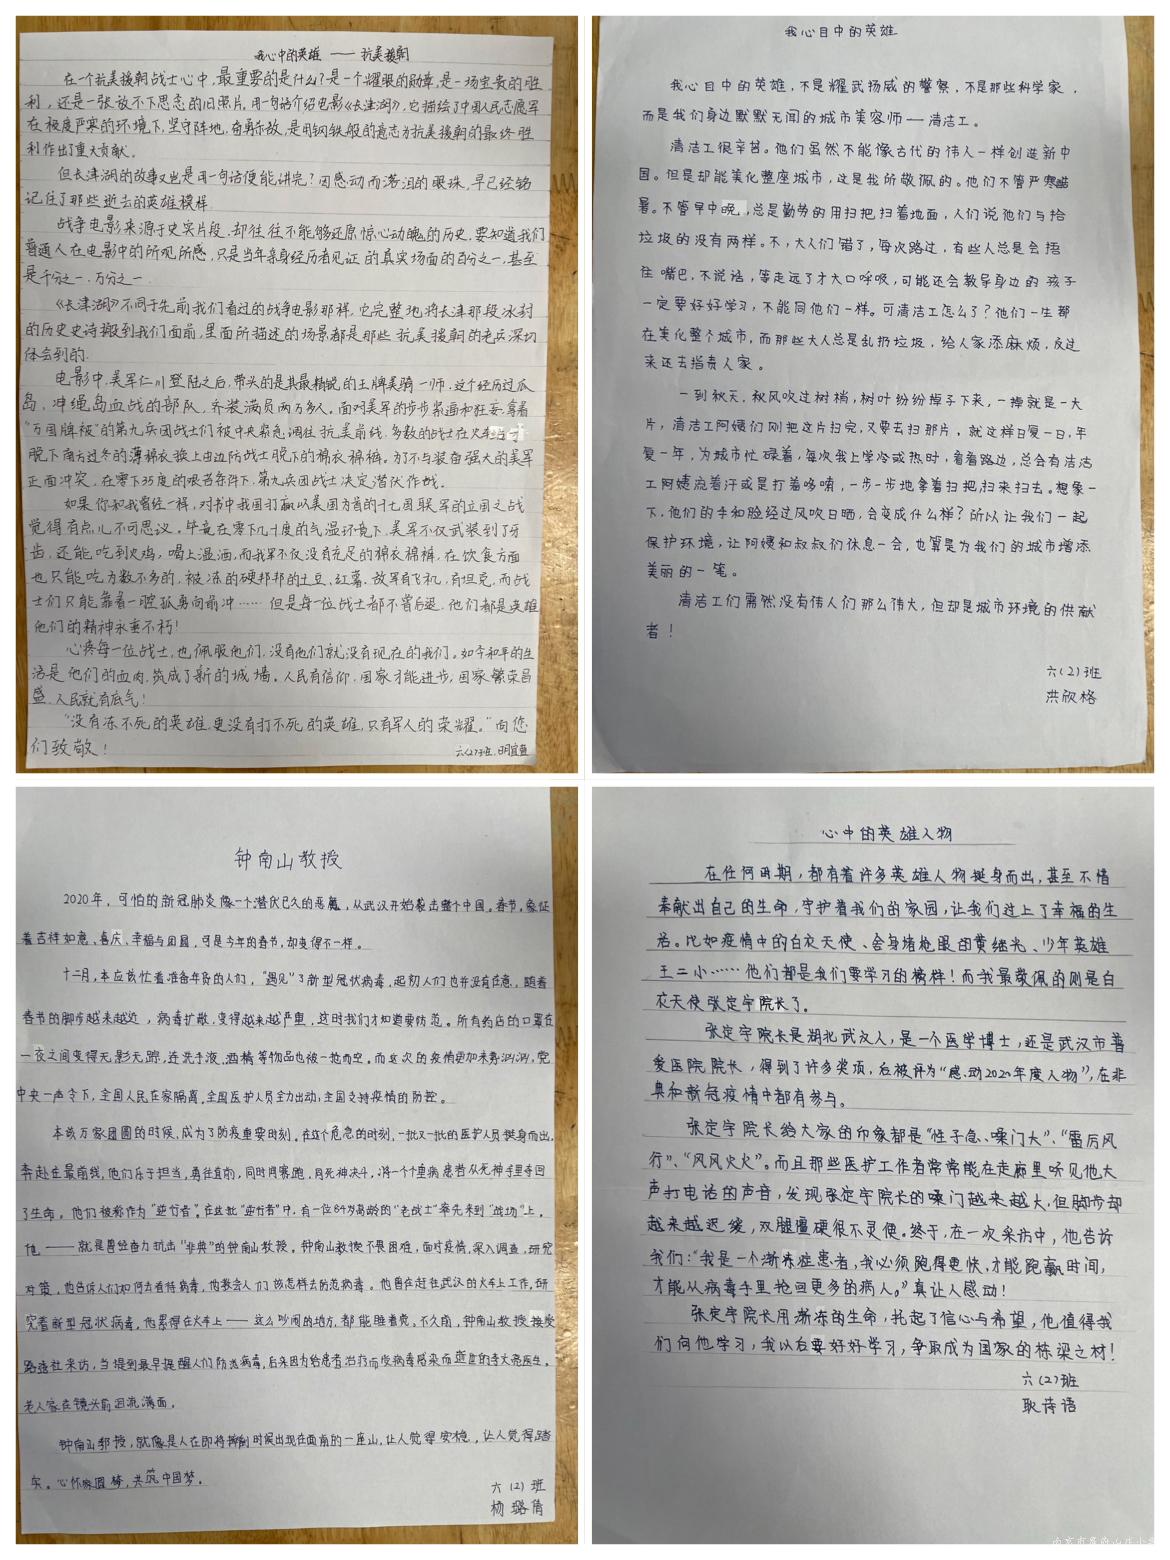 我心中的英雄 —— 抗美援朝
在一个抗美援朝战士心中,最重要的是什么?是一个耀眼的勋章,是一场宝贵的胜
利,还是一张放不下思念的旧照片。用一句话介绍电影《长津湖》,它描绘了中国人民志愿军
在极度严寒的环境下,坚守阵地,奋勇杀敌,是用钢铁般的意志为抗美援朝的最终胜
利作出了重大贡献。
但长津湖的故事又岂是用一句话便能讲完?因感动而落泪的眼珠,早已经铭
记住了那些逝去的英雄模样。
战争电影来源于史实片段,却往往不能够还原惊心动魄的历史,要知道我们
普通人在电影中的所观所感,只是当年亲身经历者见证的真实场面的百分之一,甚至
是千分之一,万分之一。
《长津湖》不同于先前我们看过的战争电影那样,它完整地将长津那段冰封
的历史史诗搬到我们面前,里面所描述的场景都是那些抗美援朝的老兵深切
体会到的。
电影中,美军仁川登陆之后,带头的是其最精锐的王牌美骑一师,这个经历过瓜
岛、冲绳岛血战的部队,乔装满员两万多人。面对美军的步步紧逼和狂妄,拿着
“万国牌被”的第九兵团战士们被中央紧急调往抗美前线,多数的战士在火车
脱下南方过冬的薄棉衣换上由边防战士脱下的棉衣棉裤。为了不与装备强大的美军
正面冲突,在零下35度的艰苦条件下,第九兵团战士决定潜伏作战。
如果你和我曾经一样,对书中我国打赢以美国为首的十七国联军的立国之战
觉得有点儿不可思议。毕竟在零下几十度的气温环境下,美军不仅武装到了牙
齿,还能吃到火鸡,喝上温酒,而我军不仅没有充足的棉衣棉裤,在饮食方面
也只能吃为数不多的,被冻的硬邦邦的土豆、红薯。敌军有飞机,有坦克,而战
士们只能靠着一腔孤勇向前冲……但是每一位战士都不曾后退,他们都是英雄
他们的精神永垂不朽!
心疼每一位战士,也佩服他们,没有他们就没有现在的我们。如今和平的生
活是他们的血肉,筑成了新的城墙。人民有信仰,国家才能进步,国家繁荣昌
盛,人民就有底气!
“没有冻不死的英雄,更没有打不死的英雄,只有军人的荣耀。”向您
们致敬!
六(2)班
我心目中的英雄
我心目中的英雄,不是耀武扬威的警察,不是那些科学家,
而是我们身边默默无闻的城市美容师——清洁工。
清洁工很辛苦。他们虽然不能像古代的伟人一样创造新中
国。但是却能美化整座城市,这是我所敬佩的。他们不管严寒酷
暑。不管早中晚,总是勤劳的用扫把扫着地面,人们说他们与捡
垃圾的没有两样。不,大人们错了,每次路过,有些人总是会捂
住嘴巴,不说话,等走远了才大口呼吸,可能还会教导身边的孩子
一定要好好学习,不能同他们一样。可清洁工怎么了?他们一生都
在美化整个城市,而那些大人总是乱扔垃圾,给人家添麻烦,反过
来还去指责人家。
一到秋天,秋风吹过树梢,树叶纷纷掉下来,一掉就是一大
片,清洁工阿姨们刚把这片扫完,又要去扫那片,就这样日复一日,年
复一年,为城市忙碌着,每次我上学冷或热时,看着路边,总会有清洁
工阿姨流着汗或是打着哆嗦,一步一步地拿着扫把,扫来扫去。想象一
下,他们的手和脸经过风吹日晒,会变成什么样?所以让我们一起
保护环境,让阿姨和叔叔们休息一会,也算是为我们的城市增添
美丽的一笔。
清洁工们虽然没有伟人们那么伟大,但却是城市环境的供献
者!
六(2)班
洪欣格
钟南山教授
2020年,可怕的新冠肺炎像一个潜伏已久的恶魔,从武汉开始袭击整个中国。春节,象征
着吉祥如意、喜庆、幸福与团圆,可是今年的春节,却变得不一样。
十二月,本应该忙着准备年货的人们,“遇见”了新型冠状病毒,起初人们也并没有在意,随着
春节的脚步越来越近,病毒扩散,变得越来越严重,这时我们才知道要防范。所有药店的口罩在
一夜之间变得无影无踪,连洗手液,酒精等物品也被一抢而空。而这次的疫情更加来势汹汹,党
中央一声令下,全国人民在家隔离,全国医护人员全力出动,全国支持疫情的防控。
本该万家团圆的时候,成为了防疫重要时刻。在这个危急的时刻,一批又一批的医护人员挺身而出,
奔赴在最前线,他们乐于担当,勇往直前,同时间赛跑,同死神决斗,将一个个重病患者从死神手里夺回
了生命。他们被称作为“逆行者”。在这批“逆行者”中,有一位84岁高龄的“老战士”率先来到“战场”上,
他——就是曾经奋力抗击“非典”的钟南山教授。钟南山教授不畏困难,面对疫情,深入调查,研究
对策,他告诉人们如何去看待病毒,他教会人们该怎样去防范病毒。他曾在赶往武汉的火车上工作,研
究着新型冠状病毒,他累得在火车上——这么吵闹的地方,都能睡着觉。不久前,钟南山教授接受
路透社采访,当提到最早提醒人们防范病毒,后来因为给患者治疗而受病毒感染而逝世的李文亮医生,
老人家在镜头前泪流满面。
钟南山教授,就像是人在即将摔倒时候出现在面前的一座山,让人觉得安稳,让人觉得踏
实。心怀家国梦,共筑中国梦。
六(2)班
杨璐倩
心中的英雄人物
在任何时期,都有着许多英雄人物挺身而出,甚至不惜
奉献出自己的生命,守护着我们的家园,让我们过上了幸福的生
活。比如疫情中的白衣天使、舍身堵枪眼的黄继光、少年英雄
王二小……他们都是我们要学习的榜样!而我最敬佩的则是白
衣天使张定宇院长了。
张定宇院长是湖北武汉人,是一个医学博士,还是武汉市普
爱医院院长,得到了许多奖项,后被评为“感动2020年度人物”,在非
典和新冠疫情中都有参与。
张定宇院长给大家的印象都是“性子急、嗓门大”、“雷厉风
行”、“风风火火”。而且那些医护工作者常常能在走廊里听见他大
声打电话的声音,发现张定宇院长的嗓门越来越大,但脚步却
越来越迟缓,双腿僵硬很不灵便。终于,在一次采访中,他告诉
我们:“我是一个渐冻症患者,我必须跑得更快,才能跑赢时间,
才能从病毒手里抢回更多的病人。”真让人感动!
张定宇院长用渐冻的生命,托起了信心与希望,他值得我
们向他学习,我以后要好好学习,争取成为国家的栋梁之材!
六(2)班
耿诗语